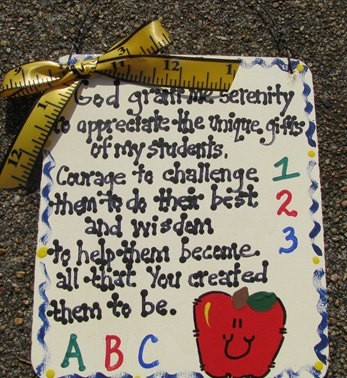 God grant me serenity
to appreciate the unique gifts
of my students.
Courage to challenge
them to do their best
and wisdom
to help them become
all that You created
them to be.
1
2
3
A B C
12
11
12